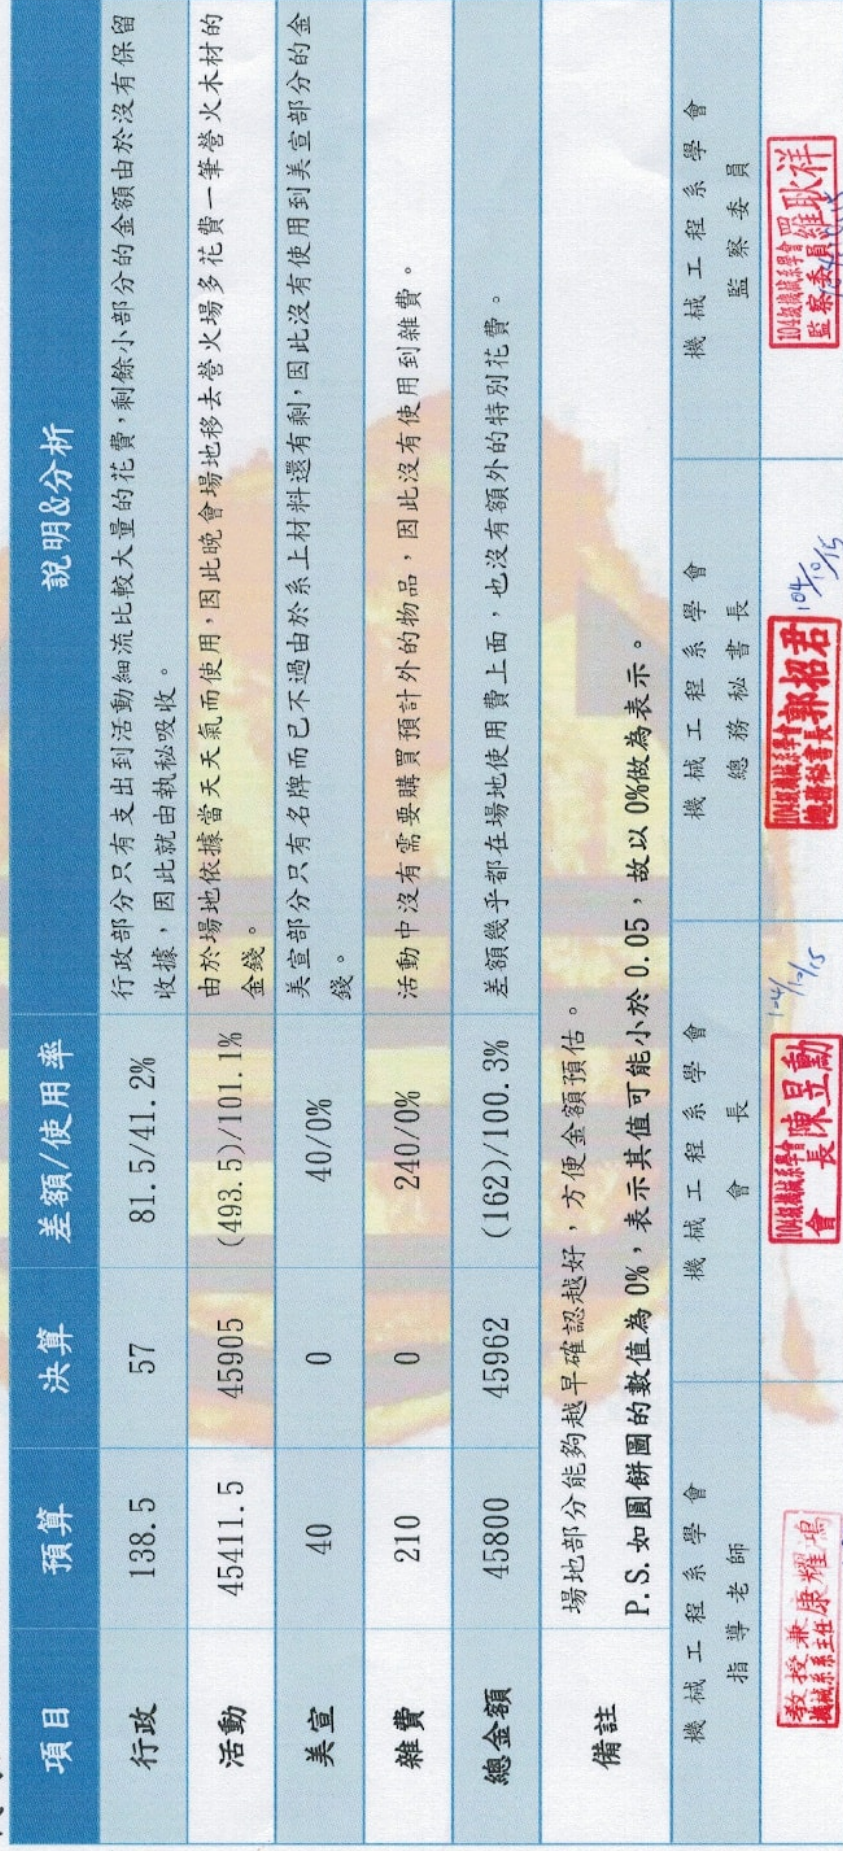 項目 預算 決算 差額/使用率 說明&分析
行政 138.5 57 81.5/41.2% 行政部分只有支出到活動細流比較大量的花費，剩餘小部分的金額由於沒有保留
收據，因此就由執秘吸收。
活動 45411.5 45905 (493.5)/101.1% 由於場地依據當天天氣而使用，因此晚會場地移去營火場多花費一筆營火木材的
金錢。
美宣 40 0 40/0% 美宣部分只有名牌而已不過由於系上材料還有剩，因此沒有使用到美宣部分的金
錢。
雜費 210 0 240/0% 活動中沒有需要購買預計外的物品，因此沒有使用到雜費。
總金額 45800 45962 (162)/100.3% 差額幾乎都在場地使用費上面，也沒有額外的特別花費。
備註 場地部分能夠越早確認越好，方便金額預估。
P.S.如圓餅圖的數值為 0%，表示其值可能小於 0.05，故以 0%做為表示。
機械工程系學會
指導老師
機械工程系學會
會長
機械工程系學會
總務秘書長
機械工程系學會
監察委員
教授兼
機械系系主任 康耀鴻
104級機械系學會
會長 陳昱勳
104/10/15
104級機械系學會
總務秘書長 郭招君
104/10/15
104級機械系學會
監察委員 羅耿祥